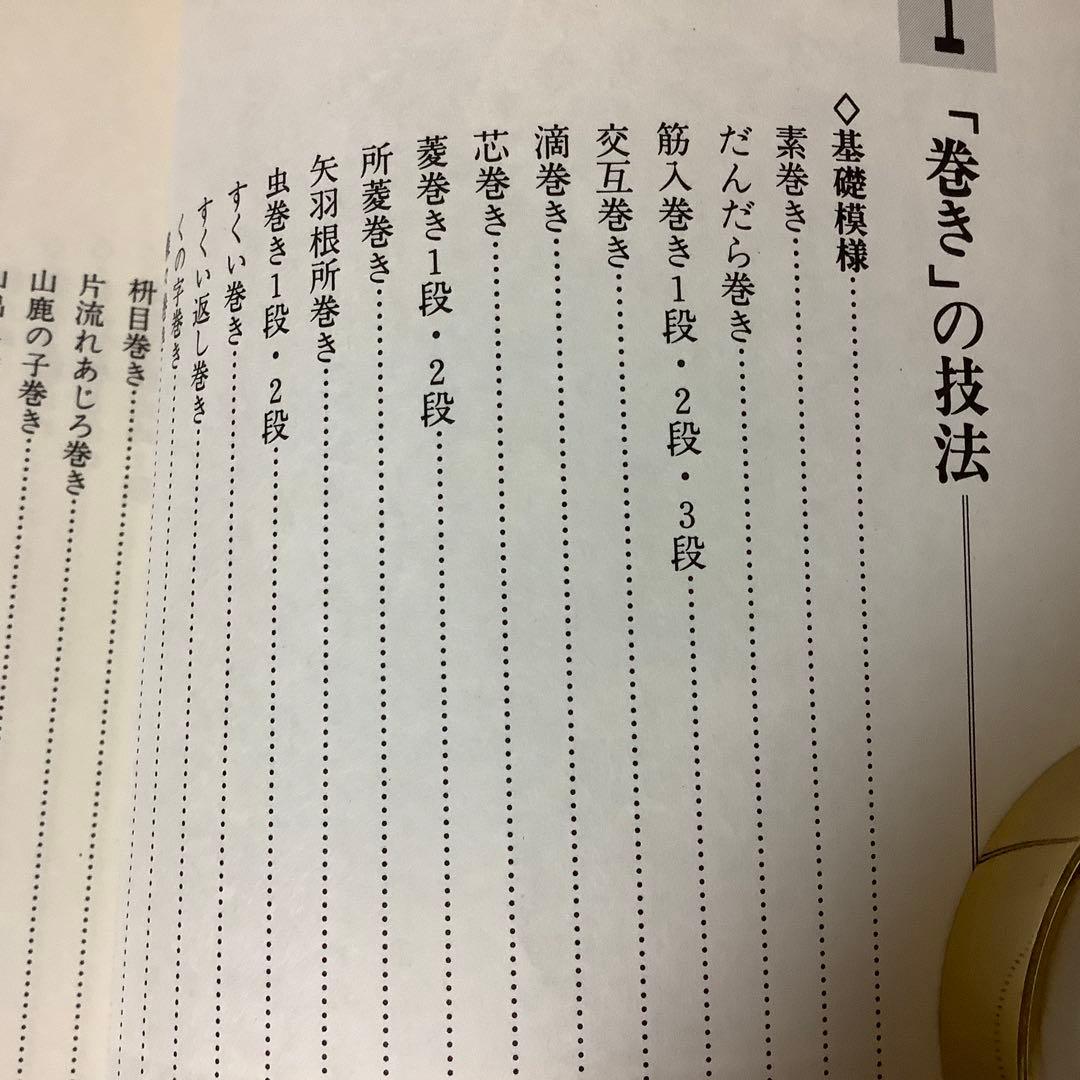 1
「巻き」の技法
◇基礎模様
素巻き
だんだら巻き
筋入巻き1段・2段・3段
交互巻き
滴巻き
芯巻き
菱巻き1段・2段
所菱巻き
矢羽根所巻き
虫巻き1段・2段
すくい巻き
すくい返し巻き
くの字巻き
枡目巻き
片流れあじろ巻き
山鹿の子巻き